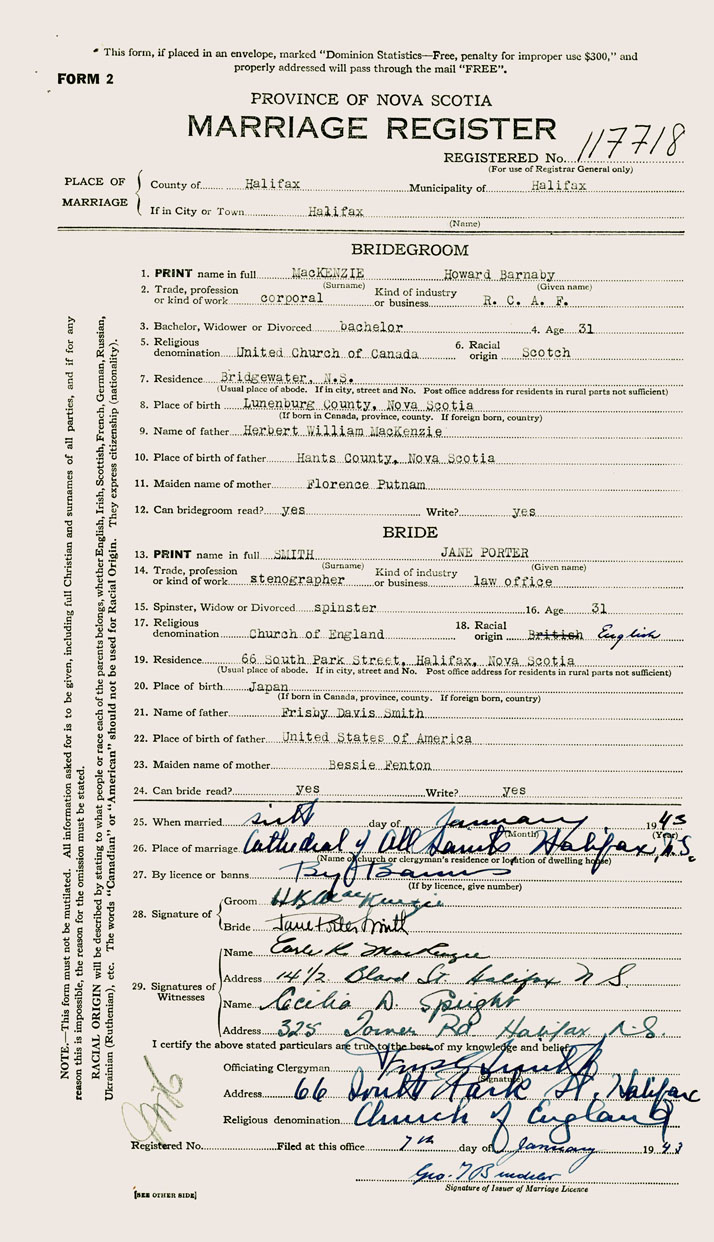 * This form, if placed in an envelope, marked "Dominion Statistics—Free, penalty for improper use $300," and
properly addressed will pass through the mail "FREE".
FORM 2
PROVINCE OF NOVA SCOTIA
MARRIAGE REGISTER
REGISTERED No. 117718
(For use of Registrar General only)
PLACE OF MARRIAGE
County of Halifax Municipality of Halifax
If in City or Town Halifax
(Name)
BRIDEGROOM
1. PRINT name in full MacKENZIE Howard Barnaby
(Surname) (Given name)
2. Trade, profession or kind of work corporal Kind of industry or business R. C. A. F.
3. Bachelor, Widower or Divorced bachelor 4. Age 31
5. Religious denomination United Church of Canada 6. Racial origin Scotch
7. Residence Bridgewater, N.S.
(Usual place of abode. If in city, street and No. Post office address for residents in rural parts not sufficient)
8. Place of birth Lunenburg County, Nova Scotia
(If born in Canada, province, county. If foreign born, country)
9. Name of father Herbert William MacKenzie
10. Place of birth of father Hants County, Nova Scotia
11. Maiden name of mother Florence Putnam
12. Can bridegroom read? yes Write? yes
BRIDE
13. PRINT name in full SMITH JANE PORTER
(Surname) (Given name)
14. Trade, profession or kind of work stenographer Kind of industry or business law office
15. Spinster, Widow or Divorced spinster 16. Age 31
17. Religious denomination Church of England 18. Racial origin British English
19. Residence 66 South Park Street, Halifax, Nova Scotia
(Usual place of abode. If in city, street and No. Post office address for residents in rural parts not sufficient)
20. Place of birth Japan
(If born in Canada, province, county. If foreign born, country)
21. Name of father Frisby Davis Smith
22. Place of birth of father United States of America
23. Maiden name of mother Bessie Fenton
24. Can bride read? yes Write? yes
25. When married sixth day of January 1943
(Month) (Year)
26. Place of marriage Cathedral of All Saints Halifax, N.S.
(Name of church or clergyman's residence or location of dwelling house)
27. By licence or banns By Banns
(If by licence, give number)
28. Signature of
Groom H B MacKenzie
Bride Jane Porter Smith
29. Signatures of Witnesses
Name Earle R. MacKenzie
Address 14½ Bland St. Halifax N S
Name Cecilia D. Spright
Address 325 Tower Rd Halifax N.S.
I certify the above stated particulars are true to the best of my knowledge and belief
Officiating Clergyman Smith
(Signature)
Address 66 South Park St. Halifax
Religious denomination Church of England
Registered No. Filed at this office 7th day of January 1943
Geo. T
Signature of Issuer of Marriage Licence
[SEE OTHER SIDE]
NOTE.—This form must not be mutilated. All information asked for is to be given, including full Christian and surnames of all parties, and if for any
reason this is impossible, the reason for the omission must be stated.
RACIAL ORIGIN will be described by stating to what people or race each of the parents belongs, whether English, Irish, Scottish, French, German, Russian,
Ukrainian (Ruthenian), etc. The words "Canadian" or "American" should not be used for Racial Origin. They express citizenship (nationality).